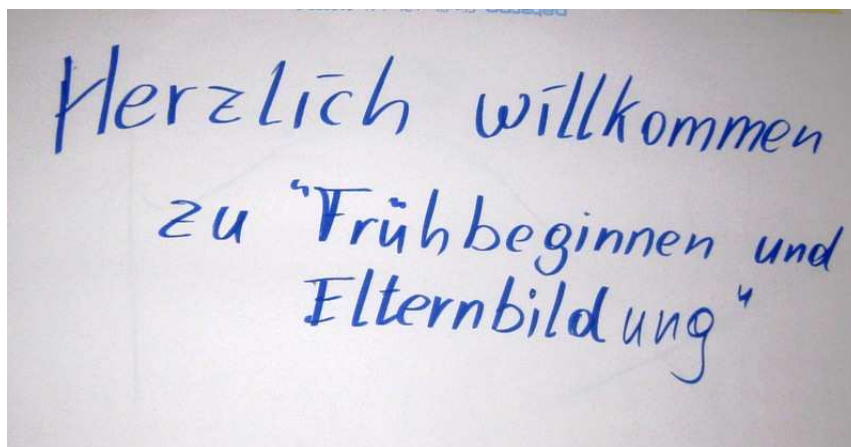 Herzlich willkommen
zu "Frühbeginnen und
Elternbildung"